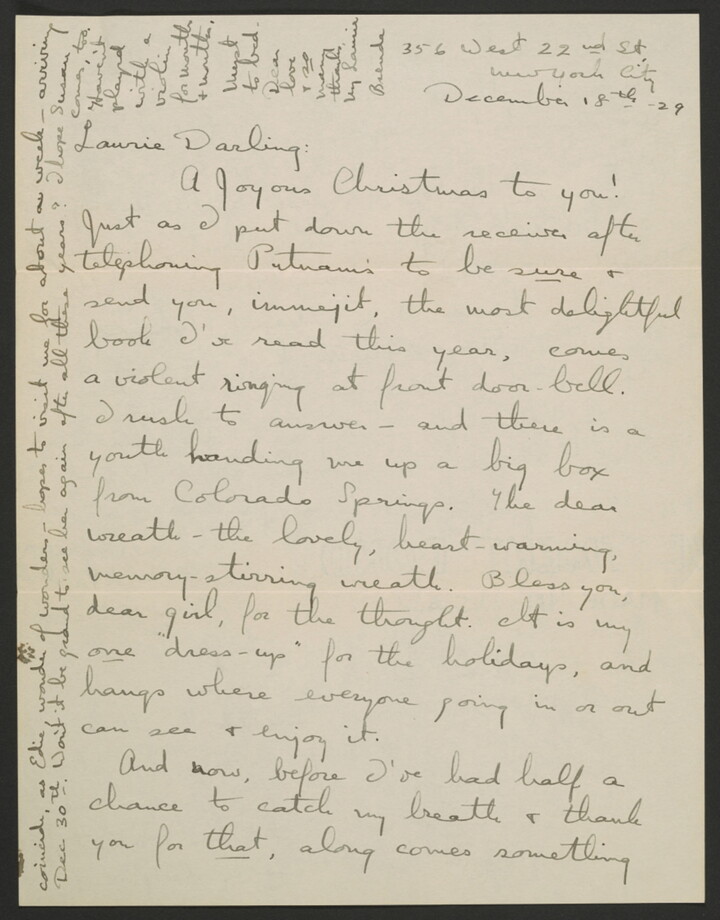 356 West 22nd St.
New York City
December 18th -29
Laurie Darling:
A Joyous Christmas to you!
Just as I put down the receiver after
telephoning Putnam's to be sure &
send you, immejit, the most delightful
book I've read this year, comes
a violent ringing at front door-bell.
I rush to answer - and there is a
youth handing me up a big box
from Colorado Springs. The dear
wreath - the lovely, heart-warming,
memory-stirring wreath. Bless you,
dear girl, for the thought. It is my
one "dress-up" for the holidays, and
hangs where everyone going in or out
can see & enjoy it.
And now, before I've had half a
chance to catch my breath & thank
you for that, along comes something
coincide, as Edie, wonder of wonders - hopes to visit me for about a week - arriving
Dec 30th. Won't it be grand to see her again after all these years? I hope Susan
comes, too.
Haven't
played
with a
violin
for months
& months.
Must
to bed.
Dear
love
& so
many
thanks,
my Laurie
Brenda